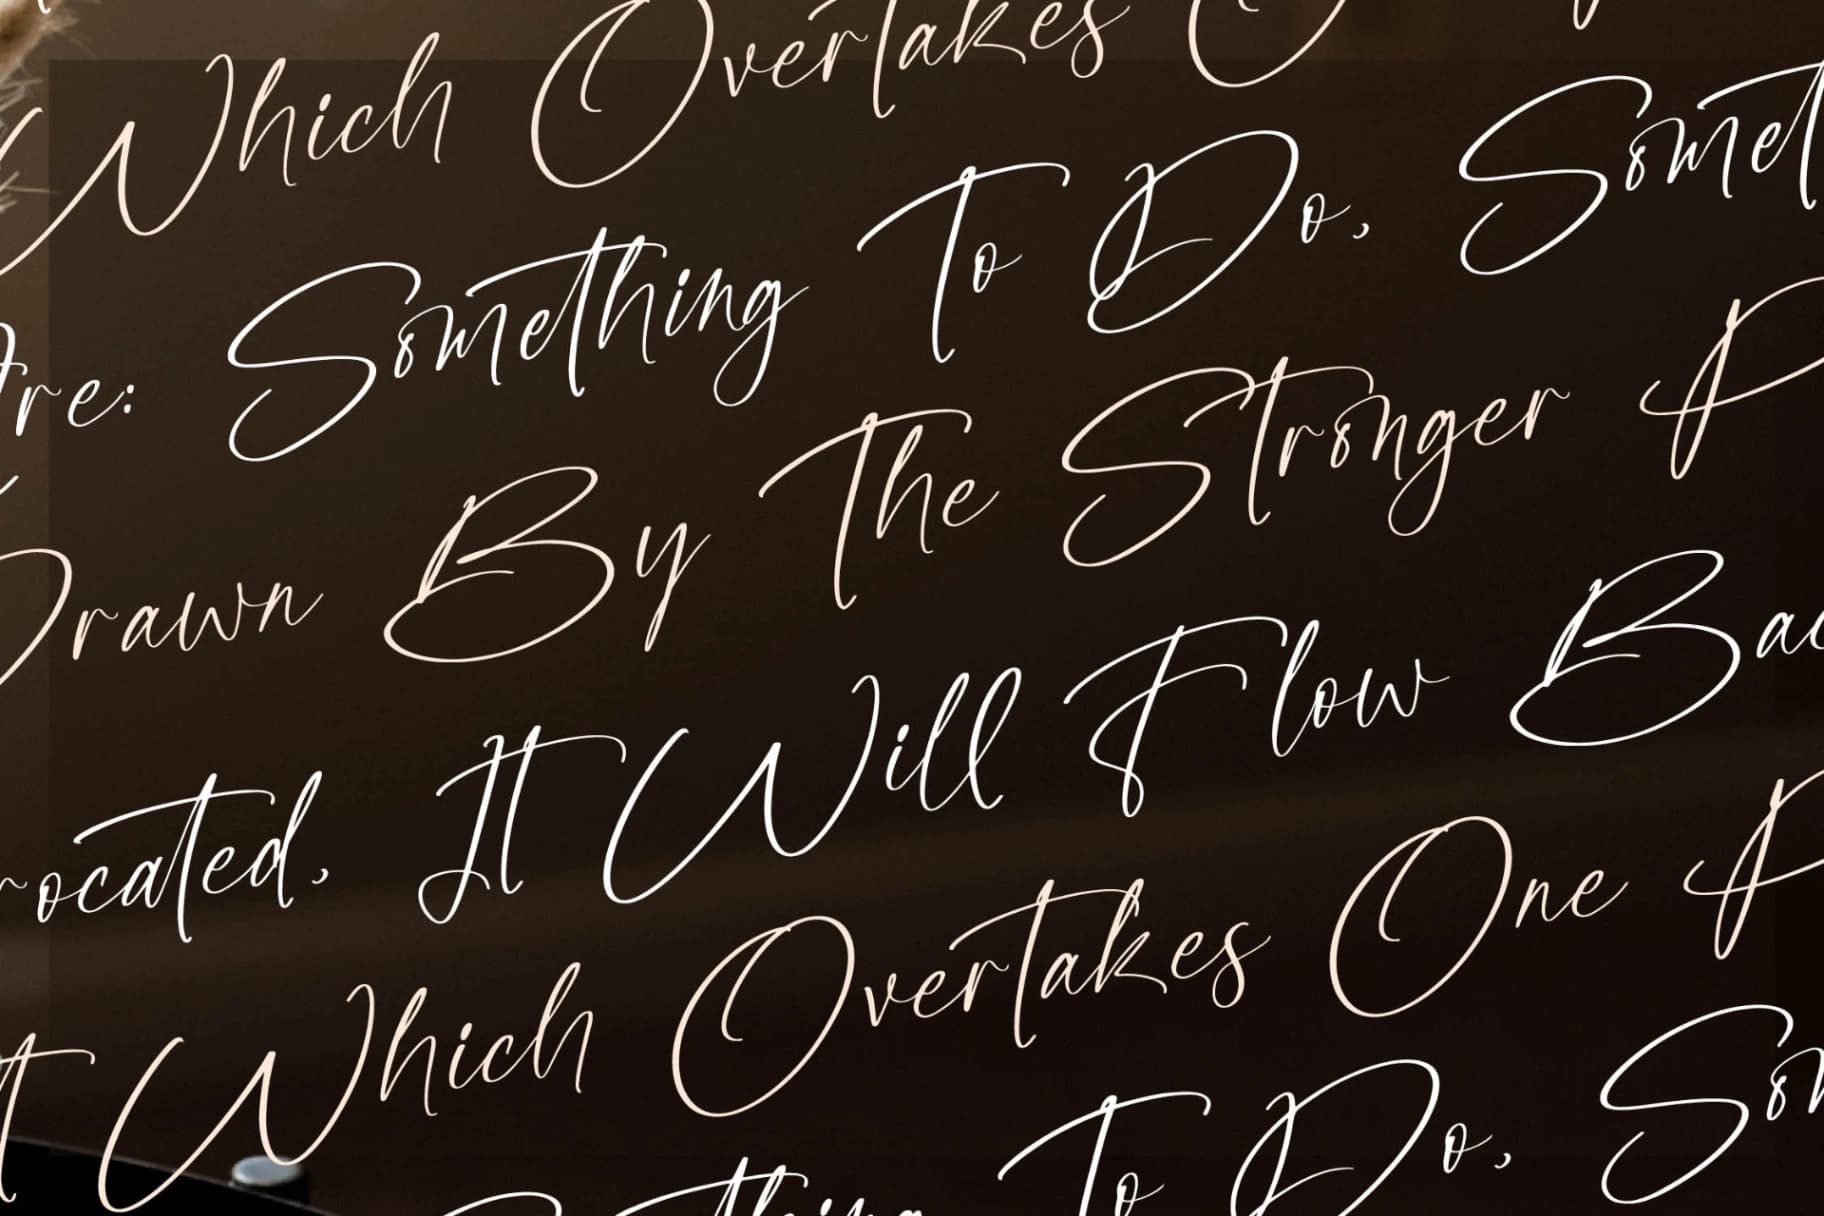 Which Overtakes
re: Something To Do, Somet
Drawn By The Stronger P
rocated, It Will Flow Bac
t Which Overtakes One P
Something To Do, Som